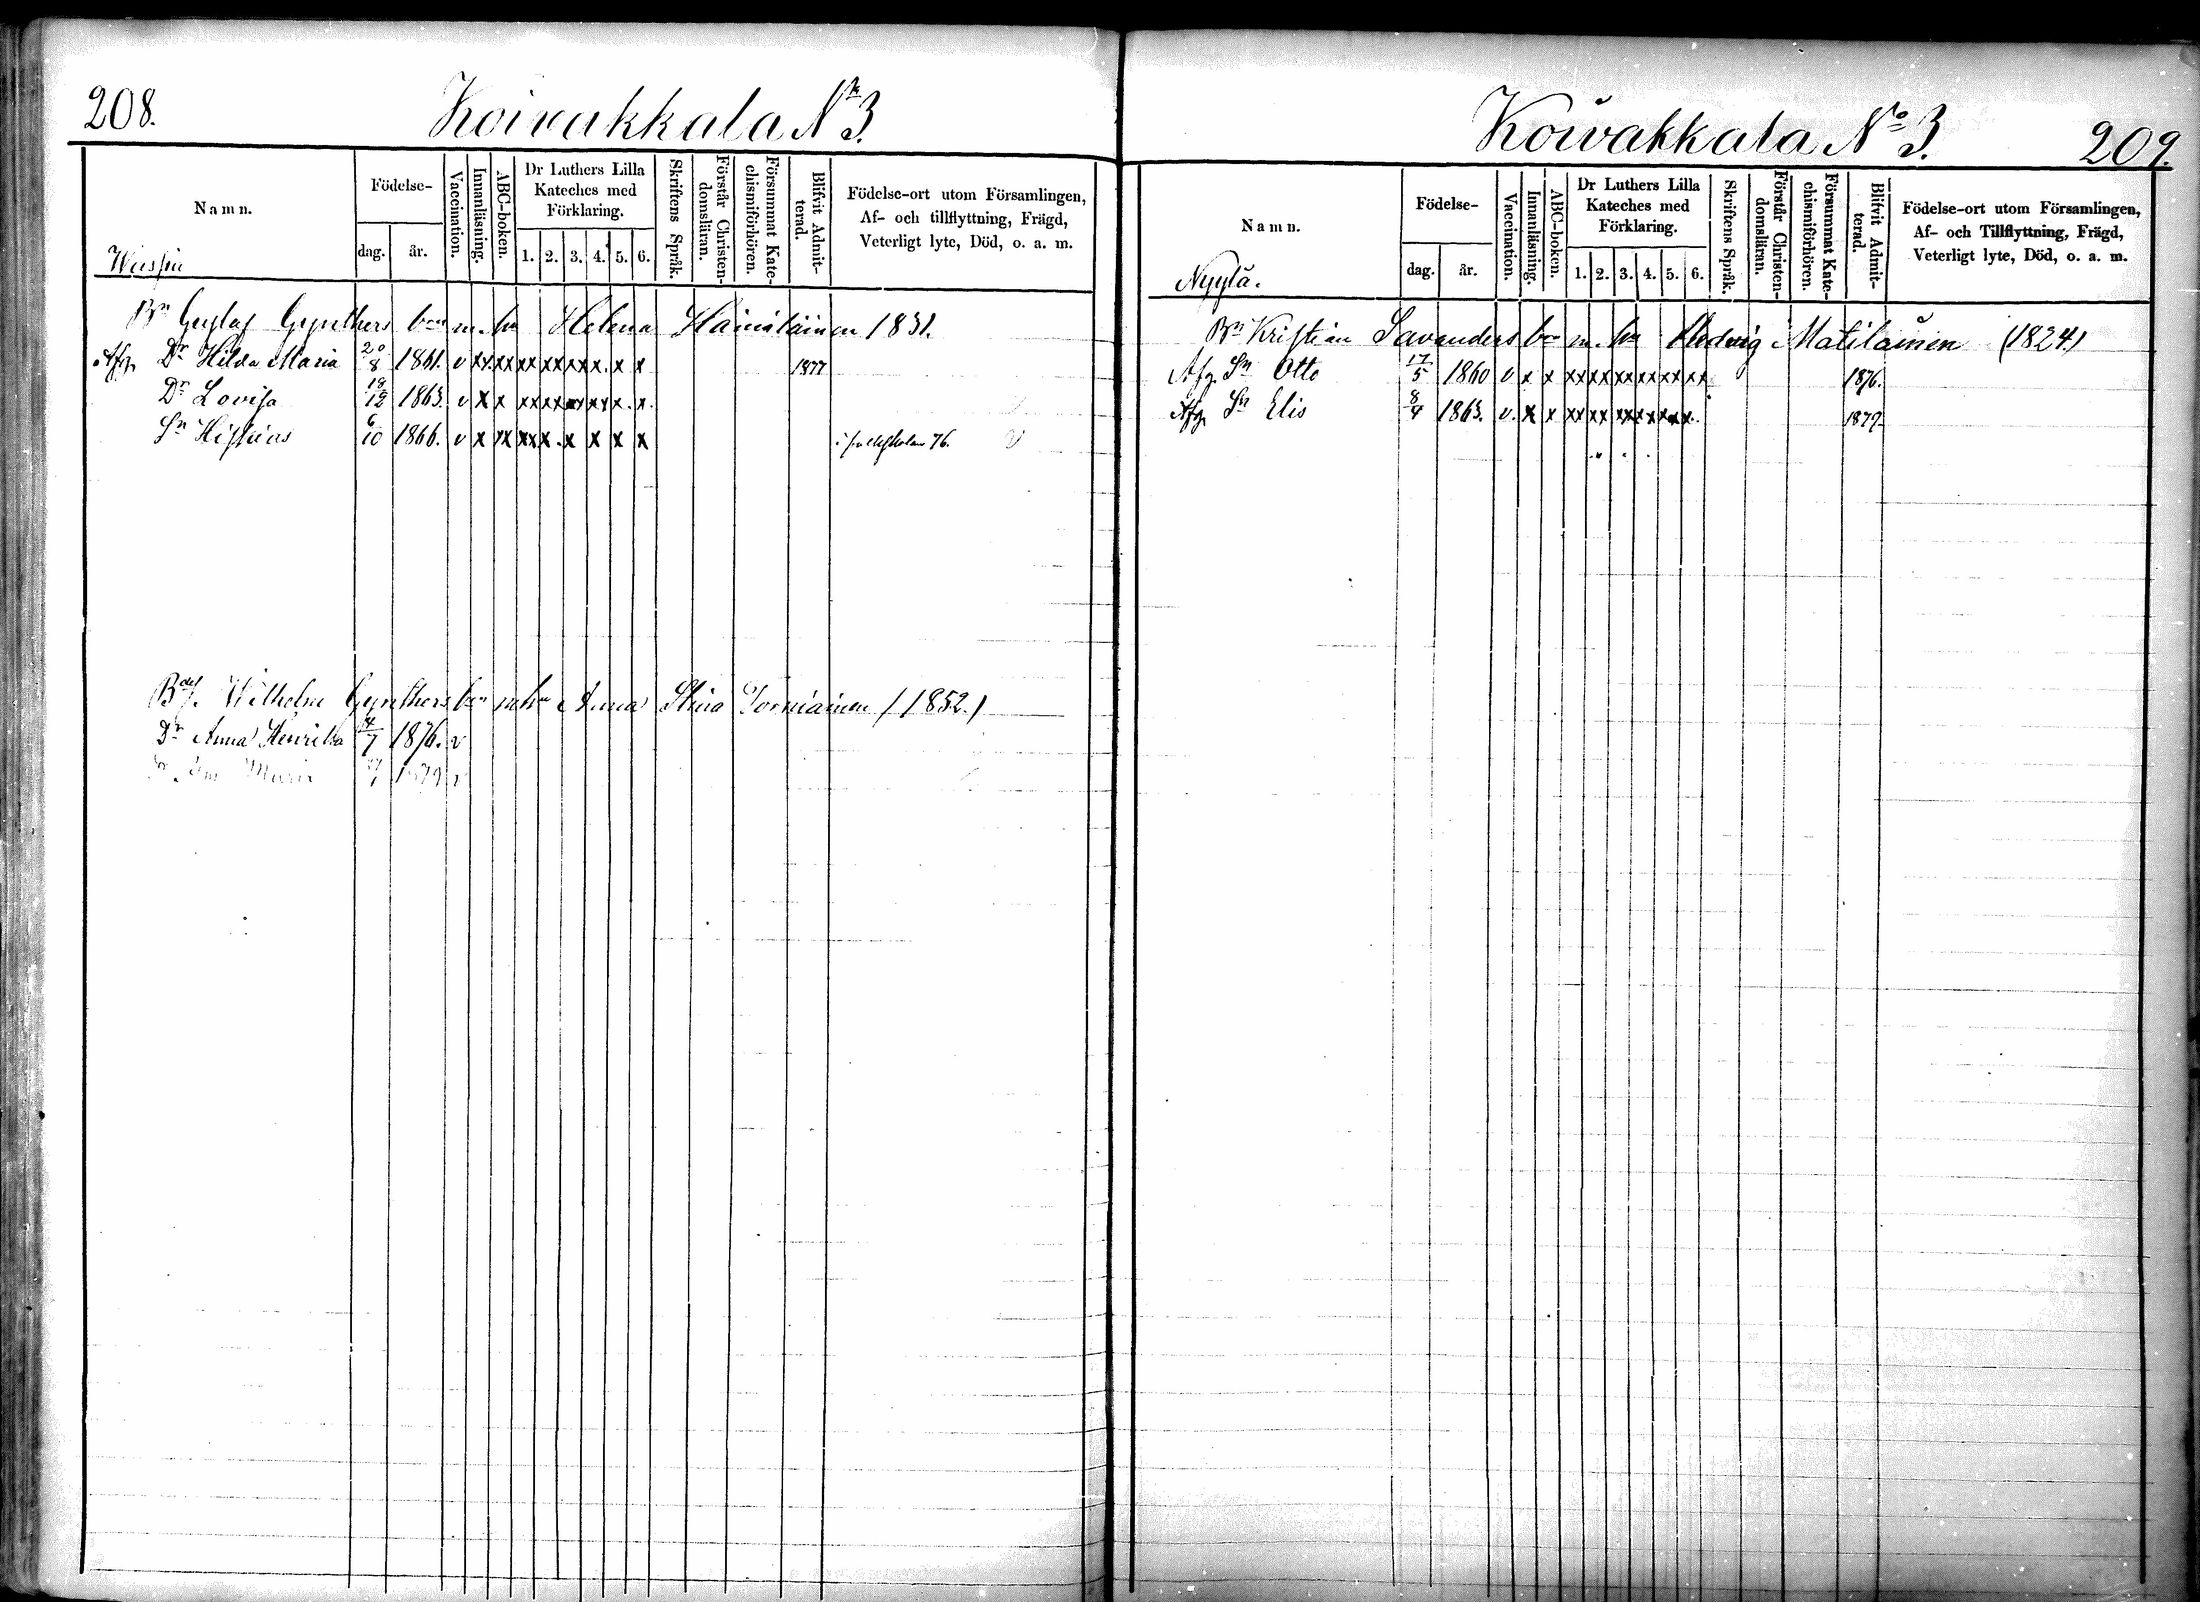 208.
Koivakkala No 3.
Namn.
Födelse-
dag.
år.
Vaccination.
Innanläsning.
ABC-boken.
Dr Luthers Lilla
Kateches med
Förklaring.
1. 2. 3. 4. 5. 6.
Skriftens Språk.
Förstår Christen-
domsläran.
Försummat Kate-
chismiförhören.
Blifvit Admit-
terad.
Födelse-ort utom Församlingen,
Af- och tillflyttning, Frägd,
Veterligt lyte, Död, o. a. m.
Bn Gustaf Gynthers bn m. hu Helena Hämäläinen 1831.
Afg. Dr Hilda Maria 20/8 1861. v xx xx xx xx xx x. x x 1877
Dr Lovisa 18/12 1863. v x x xx xx xx x. x.
Sn Hiskias 6/10 1866. v x xx xxx x x x x x i folkskolan 76.
Wilhelm Gynthers bn m hu Anna Stina Torniainen (1852.)
Dr Anna Henrika 4/7 1876. v
Maria 1879 v
Koivakkala No 3.
209.
Namn.
Nyylä.
Födelse-
dag.
år.
Vaccination.
Innanläsning.
ABC-boken.
Dr Luthers Lilla
Kateches med
Förklaring.
1. 2. 3. 4. 5. 6.
Skriftens Språk.
Förstår Christen-
domsläran.
Försummat Kate-
chismiförhören.
Blifvit Admit-
terad.
Födelse-ort utom Församlingen,
Af- och Tillflyttning, Frägd,
Veterligt lyte, Död, o. a. m.
Bn Kristian Savanders bn m. hu Hedvig Matilainen (1824)
Afg. Sn Otto 17/5 1860 v x x xx xx xx xx xx xx 1876.
Afg. Sn Elis 8/4 1863. v. x x xx xx xx xx xx x. 1879.